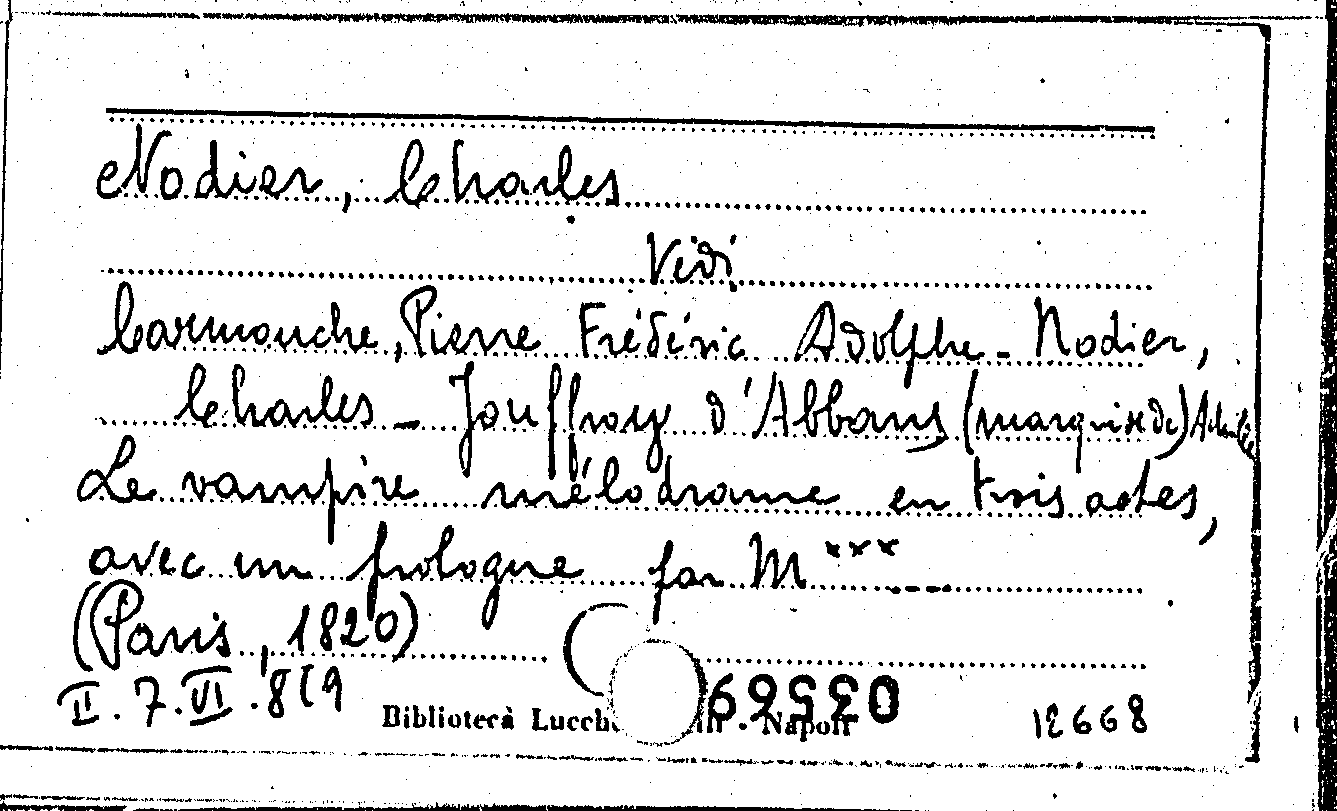 Nodier, Charles
Vedi
Carmouche, Pierre Frédéric Adolphe - Nodier,
Charles - Jouffroy d'Abbans (marquis de) Achille
Le vampire mélodrame en trois actes,
avec un prologue par M*** ...
(Paris, 1820)
II.7.VI.8(9
Biblioteca - Napoli
03569
12668